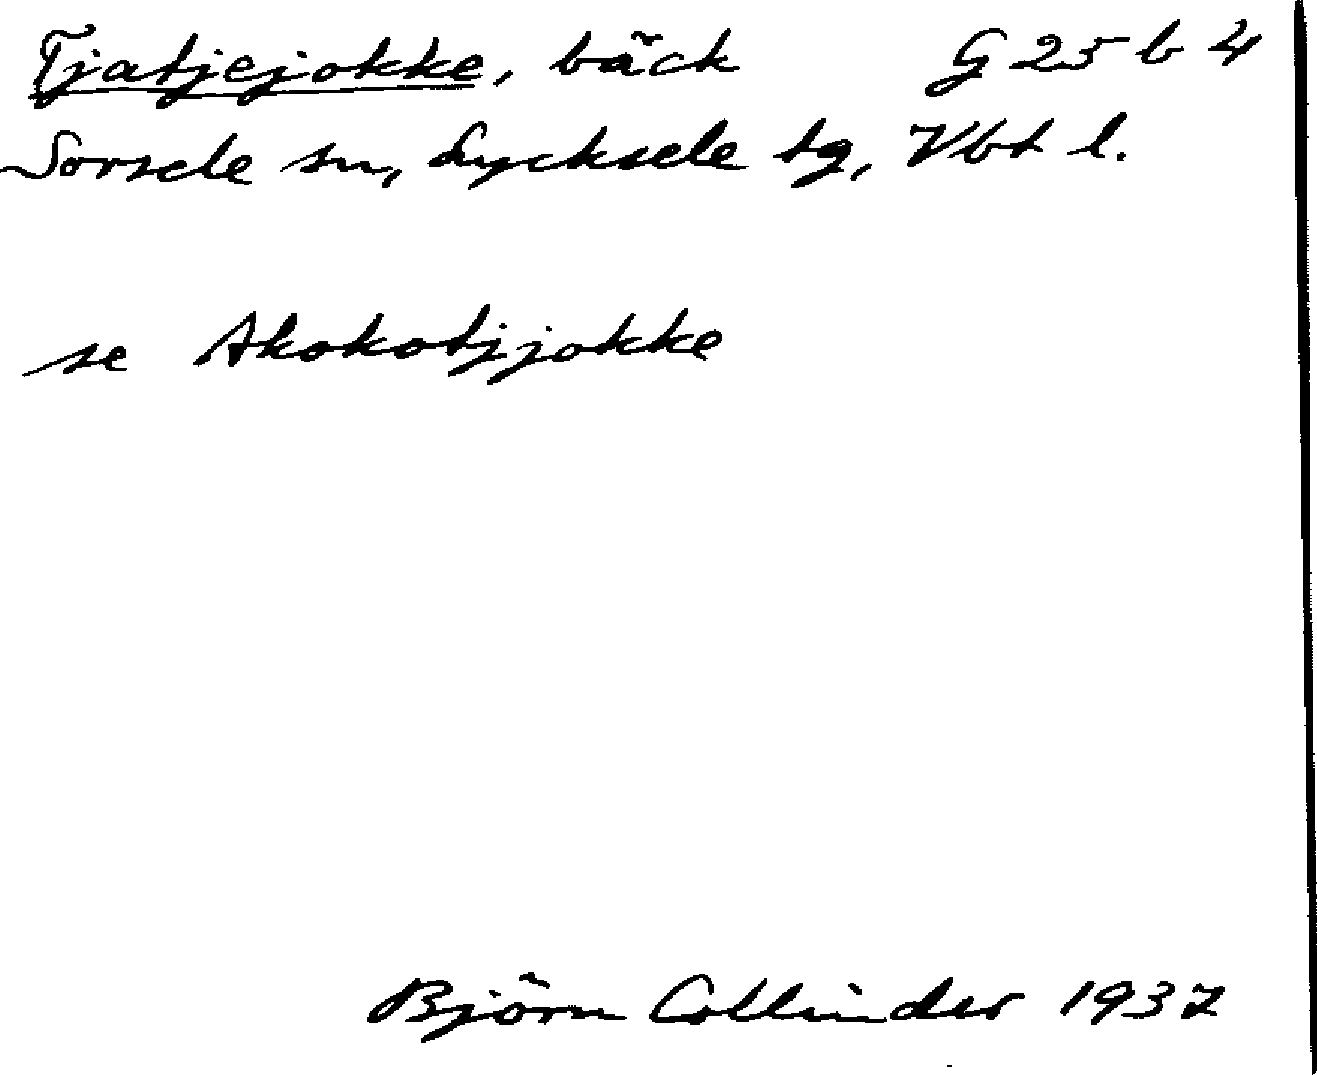 Tjatjejokke, bäck G 25 b 4
Sorsele sn, Lycksele tg, Vbt l.
se Akokotjjokke
Björn Collinder 1937